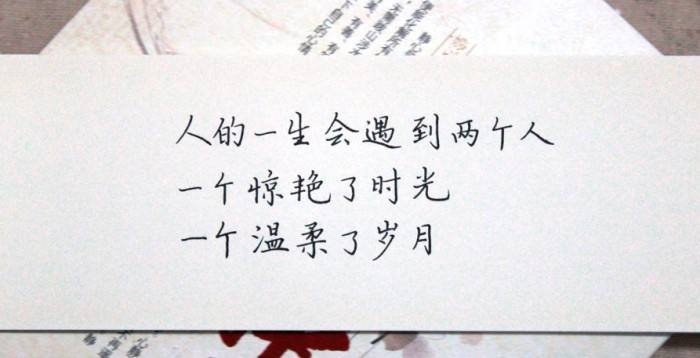 人的一生会遇到两个人
一个惊艳了时光
一个温柔了岁月